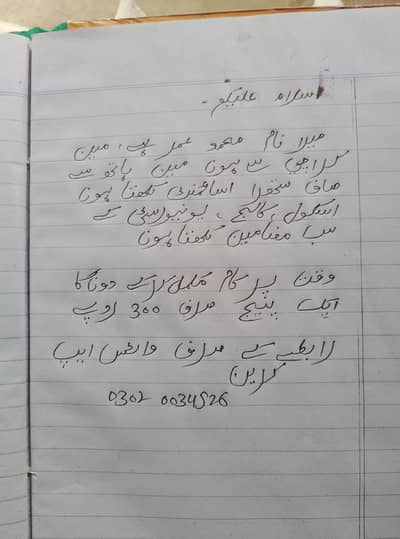 اسلام علیکم۔
میرا نام محمد عمر ہے، میں
کراچی سے ہوں میں ہاتھ سے
صاف ستھرا اسائمنٹ لکھتا ہوں
اسکول، کالج، یونیورسٹی کے
سب مضامین لکھتا ہوں
وقت پر کام مکمل کرکے دونگا
ایک پیج صرف 300 روپے
رابطے کے صرف واٹس ایپ
کریں
0302 0034526